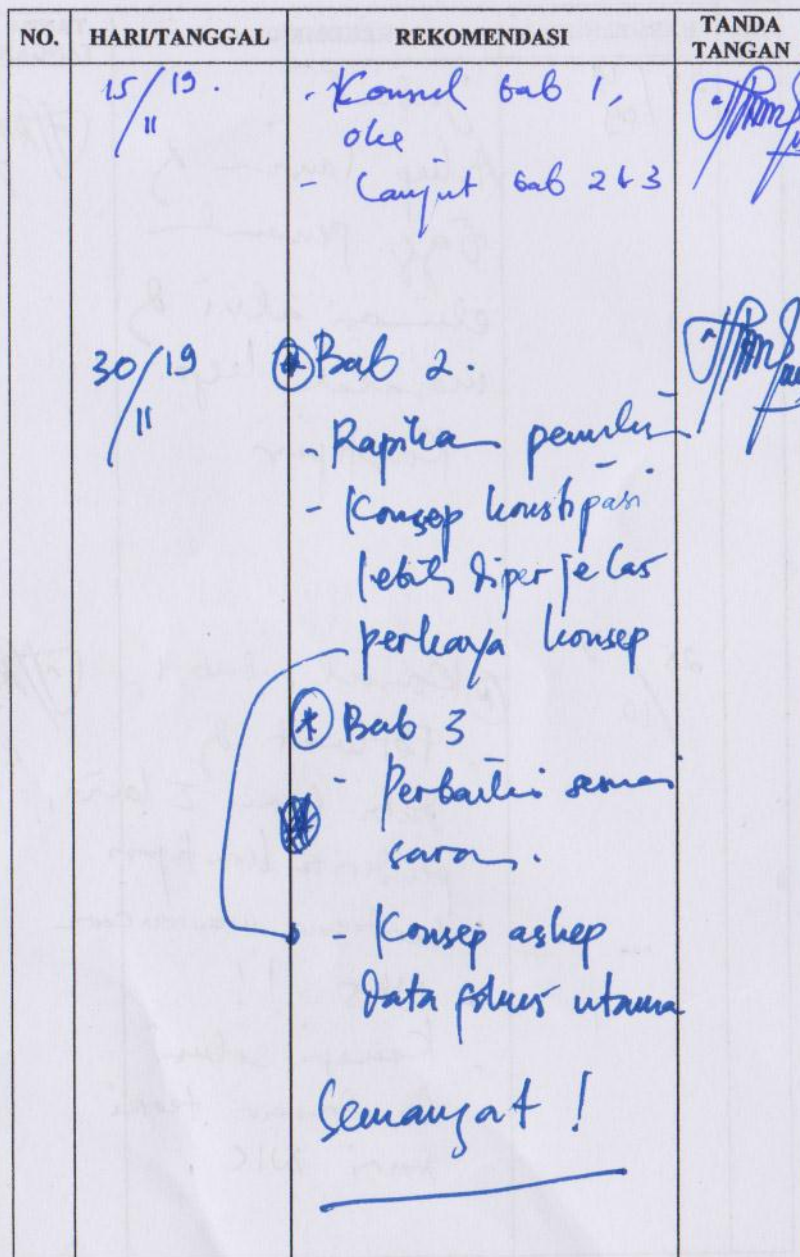 NO. HARI/TANGGAL REKOMENDASI TANDA TANGAN
15/19. - Konsul bab 1,
11 oke
- Lanjut bab 2 & 3
30/19 * Bab 2.
11
- Rapikan penulisan
- Konsep konstipasi
lebih diperjelas
perkaya konsep
* Bab 3
- Perbaiki sesuai
saran.
- Konsep askep
data fokus utama
Semangat !